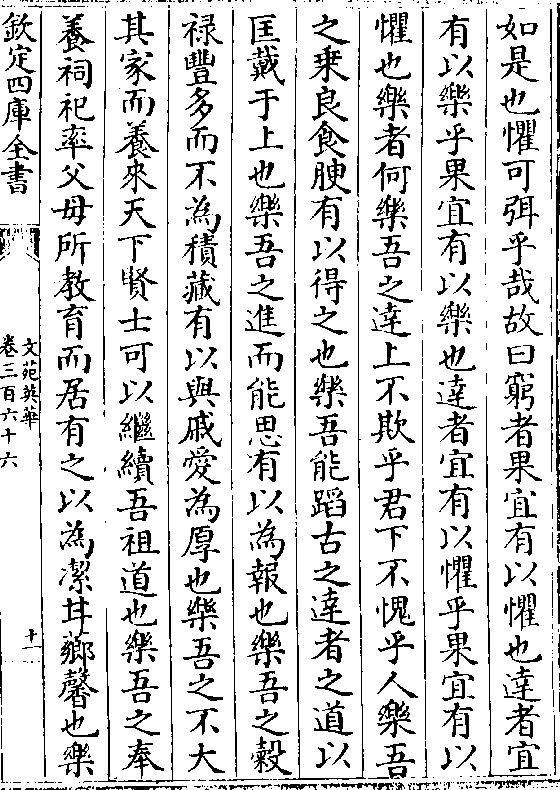 如是也懼可弭乎哉故曰窮者果宜有以懼也達者宜
有以樂乎果宜有以樂也達者宜有以懼乎果宜有以
懼也樂者何樂吾之達上不欺乎君下不愧乎人樂吾
之乗良食腴有以得之也樂吾能蹈古之達者之道以
匡戴于上也樂吾之進而能思有以為報也樂吾之穀
禄豐多而不為積藏有以與戚愛為厚也樂吾之不大
其家而養來天下賢士可以繼續吾祖道也樂吾之奉
養祠祀率父母所教育而居有之以為潔甘薌馨也樂
欽定四庫全書
文苑英華
卷三百六十六
十一